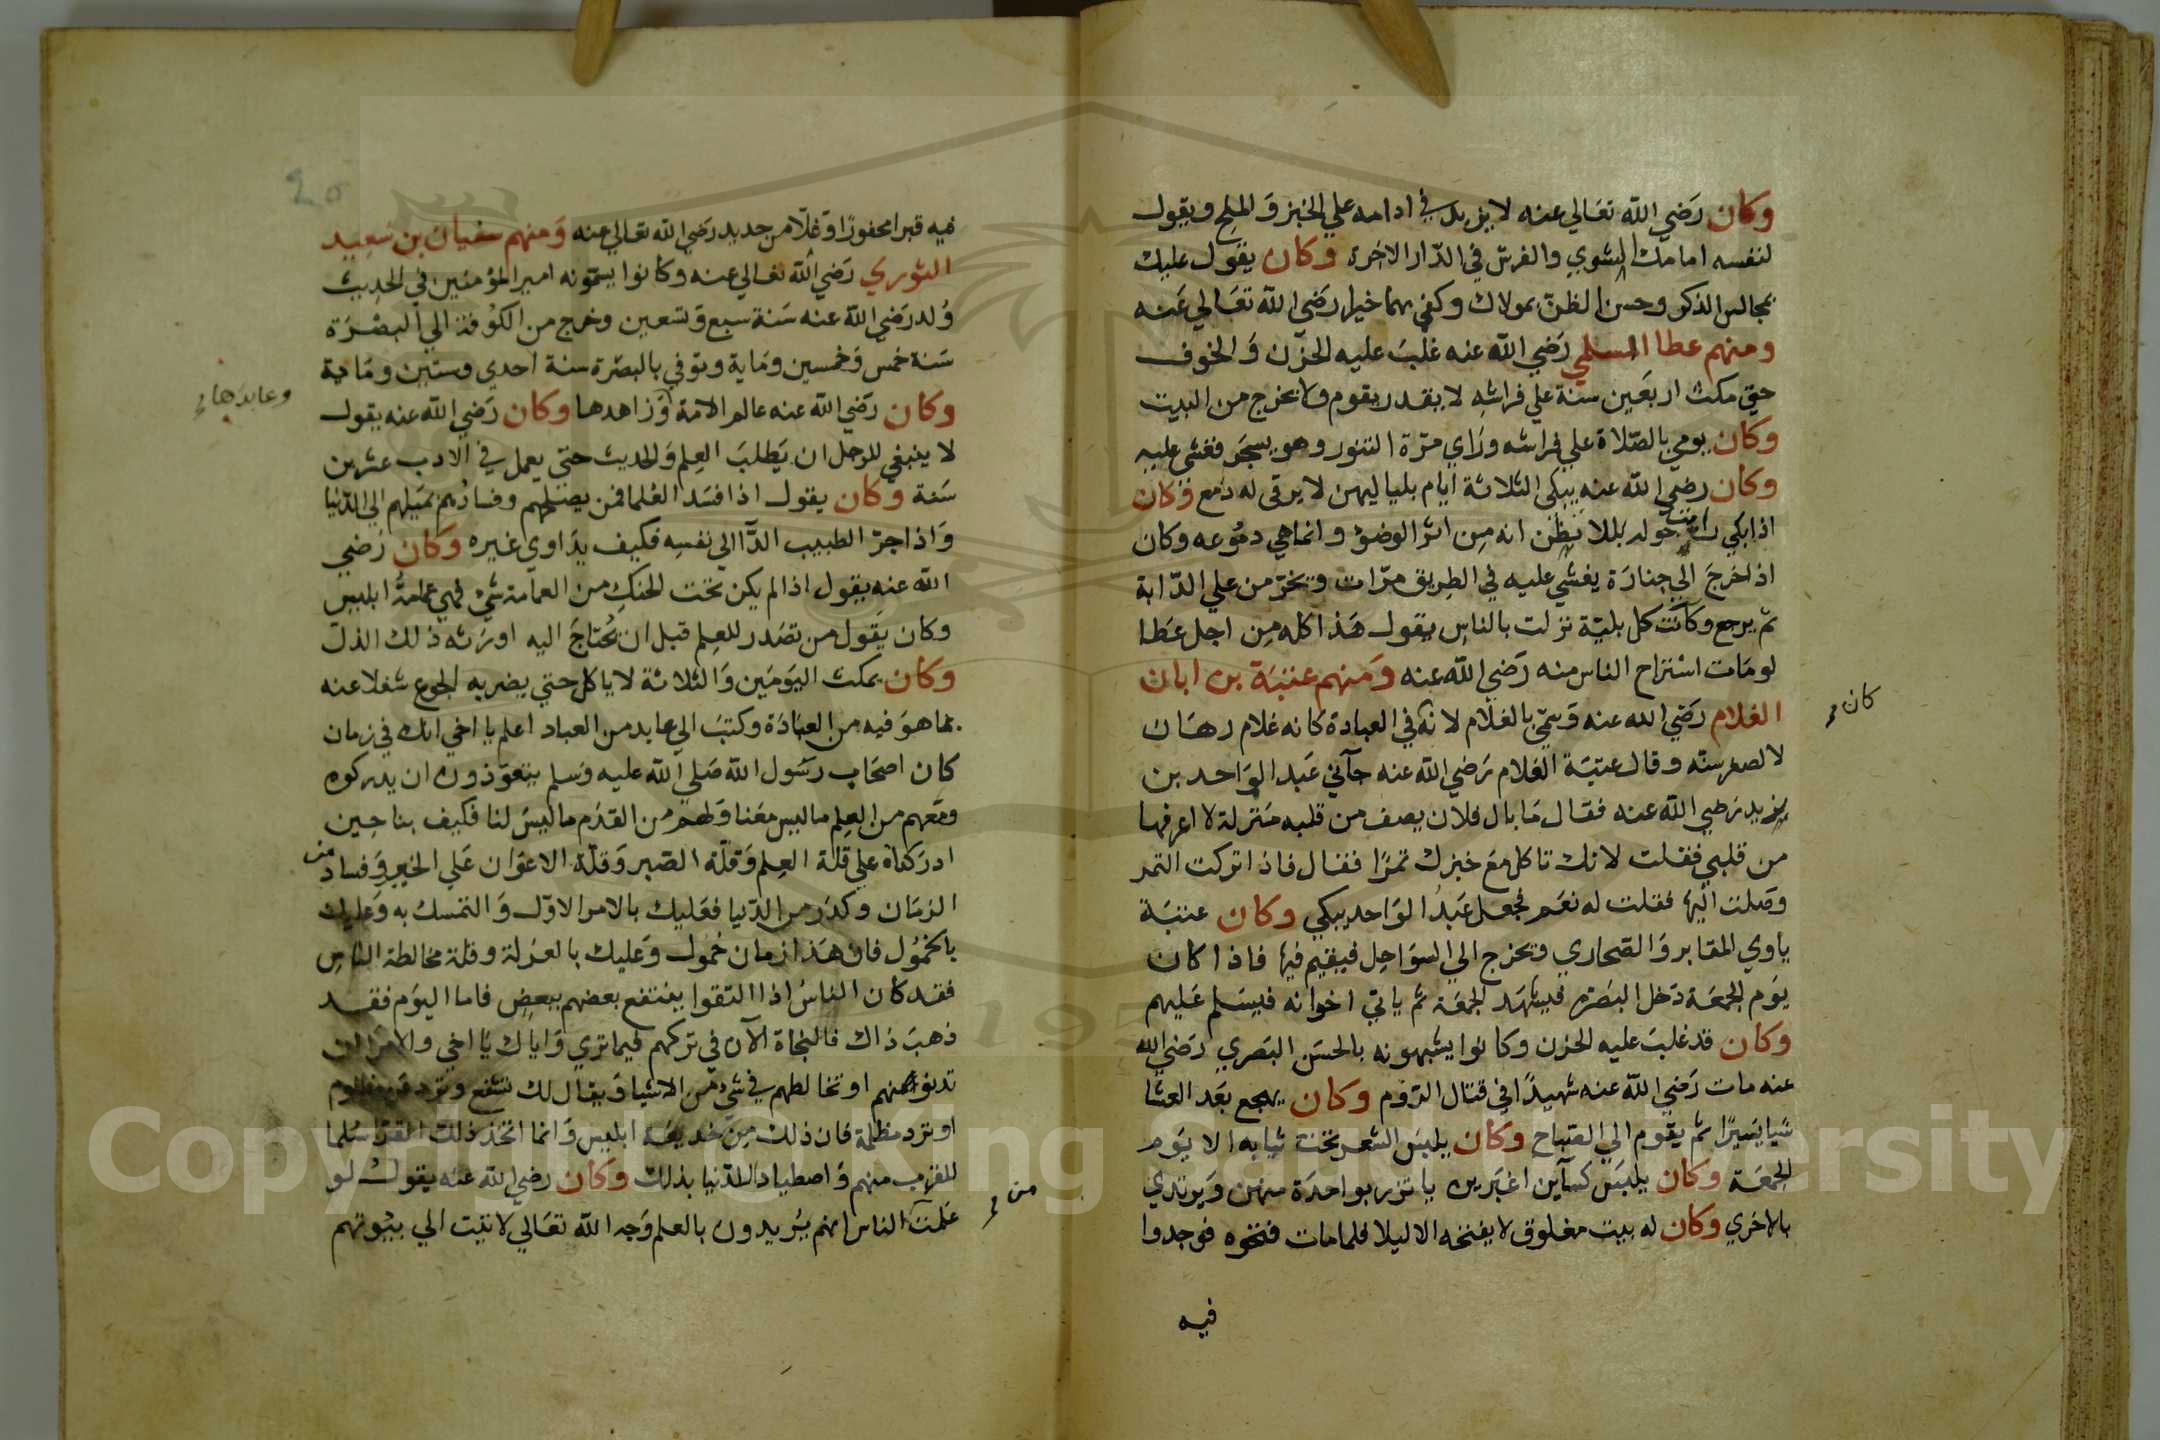 وكان رَضي الله تعَالي عنه لا يزيد في ادامه علي الخبز وَ الملح ويقول
لنفسه امامك الشوي والفرش في الدّار الاخرة وكان يقول عليك
بمجالس الذكر وحسن الظنّ بمولاك وكفي بهما خيرا رَضي الله تعَالي عَنه
ومنهم عطا السلمي رَضي الله عنه غلبَ عليه الحزن وَ الخوف
حتي مكث اربعَين سنة علي فراشِه لا يقدر يقوم ولا يخرج من البيت
وكان يومي بالصّلاة علي فراشه ورَاي مرّة التنور وهو يسجَر فغشي عليه
وكان رضي الله عنه يبكي الثلاثة ايام بلياليهن لا يرقى له دمع وَكان
اذا بكي رايت حوله بَللا يظن انه مِن اثر الوضوٓ وانما هي دمُوعه وكان
اذا خرجَ الي جنازة يغشي عليه في الطريق مرّات ويخرّ من علي الدّابة
ثم يرجع وكانت كل بليّة نزلت بالناس يقول هَذا كله مِن اجل عَطا
لو مَات استراح الناس منه رَضي الله عنه وَمنهم عتبَة بن ابان
الغلام رضَي الله عنه وَسمّي بالغلام لانه في العبادة كانه غلام رهَان
كان
لا لصغر سنّه وقال عتبَة الغلام رَضي الله عنه جآني عَبد الوَاحد بن
يزيد رَضي الله عنه فقال مَا بال فلان يصف من قلبه مَنزلة لا اعرفها
من قلبي فقلت لانك تاكل مَع خبزك تمرًا فقال فاذا تركت التمر
وصَلت اليها فقلت له نعَم فجعل عَبدُ الوَاحد يبكي وكان عتبَة
ياوي المقابر وَالصحاري ويخرج الي السوَاحِل فيقيم فيها فاذا كان
يوَم الجمعَة دَخل البصَرة فيشهَد الجمعَة ثم ياتي اخوانه فيسَلم عَليهم
وكان قد غلبَ عليه الحزن وكانوا يشبهونه بالحسَن البَصري رَضي الله
عنه مات رَضي الله عنه شهيدًا في قتال الرّوم وكان يهجع بعَد العشا
شيا يسَيرًا ثم يقوم الي الصَباح وكان يلبسَ الشعر تحت ثيابه الا يوَم
الجمعَة وكان يلبسَ كسآين اغبَرين ياتزر بواحدَة منهن وَيرتدي
بالاخري وكان له بيت مغلوق لا يفتحه الا ليلا فلما مات فتحوه فوجدوا
فيه
فيه قبرا محفورًا وَغلّا من حديد رَضي الله تعَالي عنه وَمنهم سفيان بن سَعِيد
الثوري رَضي الله تعالي عنه وكانوا يسمّونه امير المؤمنَين في الحديث
وُلد رَضي الله عنه سَنة سبع وَتسَعين وخرج من الكُوفة الي البصْرَة
سَنة خمس وَخمسين ومَاية وتوفي بالبصَرة سنة احدي وستين ومَاية
وكان رَضي الله عنه عالم الامة وَزاهدها وكان رَضي الله عنه يقول
وعابدَها
لا ينبغي للرجل ان يَطلبَ العِلم وَالحديث حتى يعمل في الادب عشرين
سَنة وكان يقول اذا فسَد العُلما فمن يصلحهم وفسادُهم بميَلهم الي الدّنيا
وَاذا جرّ الطبيب الدّآ الي نفسِه فكيف يدَاوي غيره وكان رَضي
الله عنه يقول اذا لم يكن تحت الحنكِ من العمَامة شي فهي عمامةُ ابليس
وكان يَقول من تصَدر للعِلم قبل ان يُحتاجَ اليه اورَثه ذلك الذل
وكان يمكث اليوَمَين وَالثلاثة لا ياكل حتي يضر به الجوع شغلا عنه
بما هوَ فيه من العبَادَة وكتبَ الي عابد من العباد اعلم يا اخي انك في زمان
كان اصحَاب رسَول الله صَلي الله عليه وَسلم يتعوّذون ان يدركوه
ومَعهم من العِلم ما ليس معَنا وَلهم من القدَم ما ليسَ لنا فكيف بنا حين
ادرَكناه علي قلة العِلم وَقلّة الصّبر وَقلّة الاعوَان عَلي الخير وَفساد من
الزمَان وكدَر من الدّنيا فعَليك بالامر الاوّل وَالتمسك به وَعليك
بالخمُول فان هَذا زمان خمُول وَعليك بالعزلة وقلة مخالطة الناس
فقد كان الناسُ اذا التقوا ينتفع بعضهم ببعضِ فاما اليوَم فقد
ذهبَ ذاك فالنجَاة الآن في تركهم فيما تري وَاياك يَا اخي والامرَا ان
تدنو منهم او تخالطهم في شئ من الاشيا وَيقال لك تشفع وترد عَن مظلوم
او ترد مظلمة فان ذلك مِن خديعَة ابليس وَانما اتخذ ذلك القرّا سُلما
للقرب منهم وَاصطياد الدّنيا بذلك وكان رضي الله عنه يقول لو
من
عَلمت الناس انهم يُريدون بالعلم وَجه الله تعَالي لاتيت الي بيُوتهم